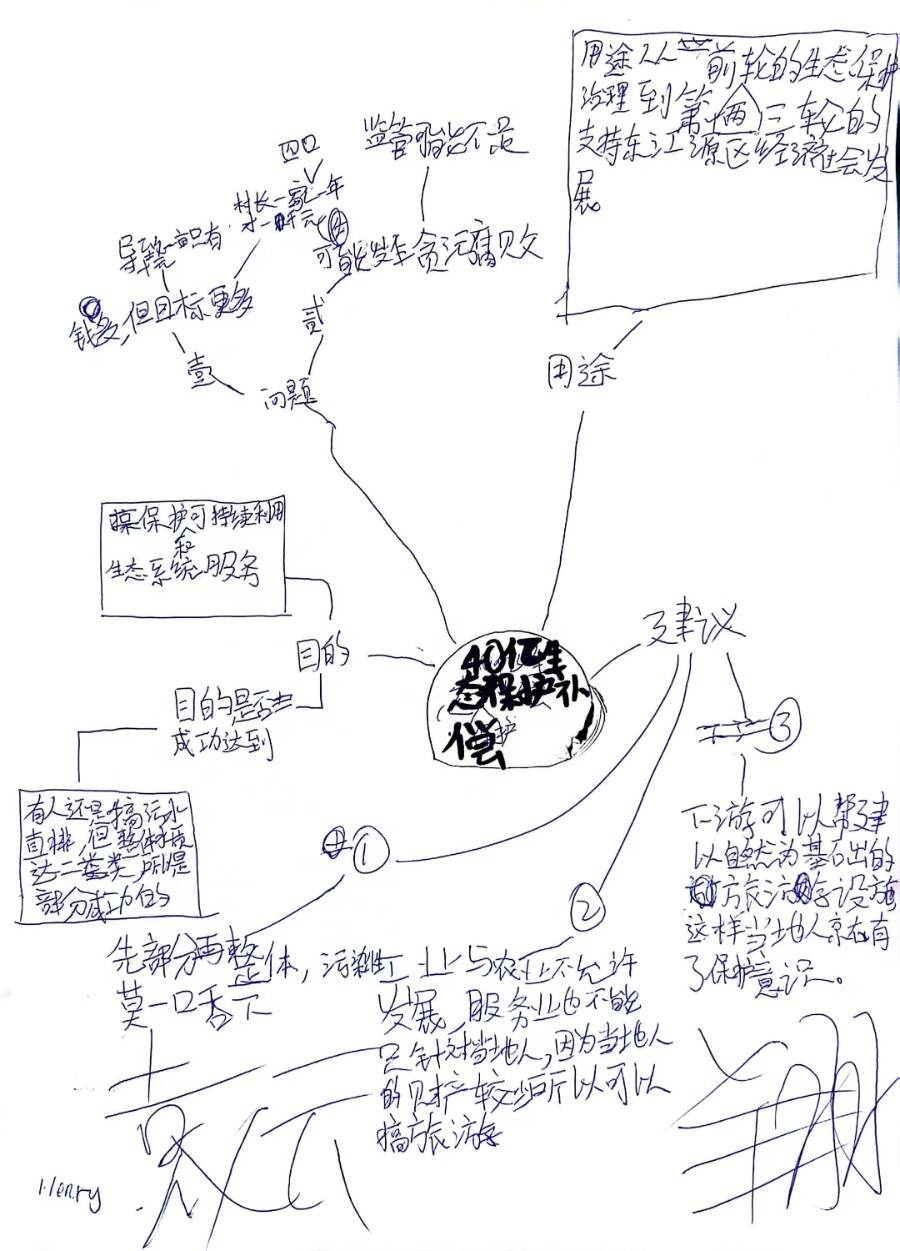 用途从前两轮的生态保护
治理到第三轮的
支持东江源区经济社会发
展
用途
监管可能不足
可能发生贪污腐败
贰
四口
村长一家一年
才一千元
导致一亩只有
钱多,但目标更多
壹
问题
保护可持续利用
和
生态系统服务
目的
目的是否
成功达到
有人还是搞污水
直排,但整体水质
达二类 所以是
部分成功的
40亿生
态保护补
偿
建议
①
先部分再整
体,
莫一口吞下
②
污染性工业与农业不允许
发展,服务业也不能
只针对当地人,因为当地人
的财产较少所以可以
搞旅游
③
下游可以帮建
以自然为基础的
旅游设施
这样当地人就有
了保护意识。
Henry
翔